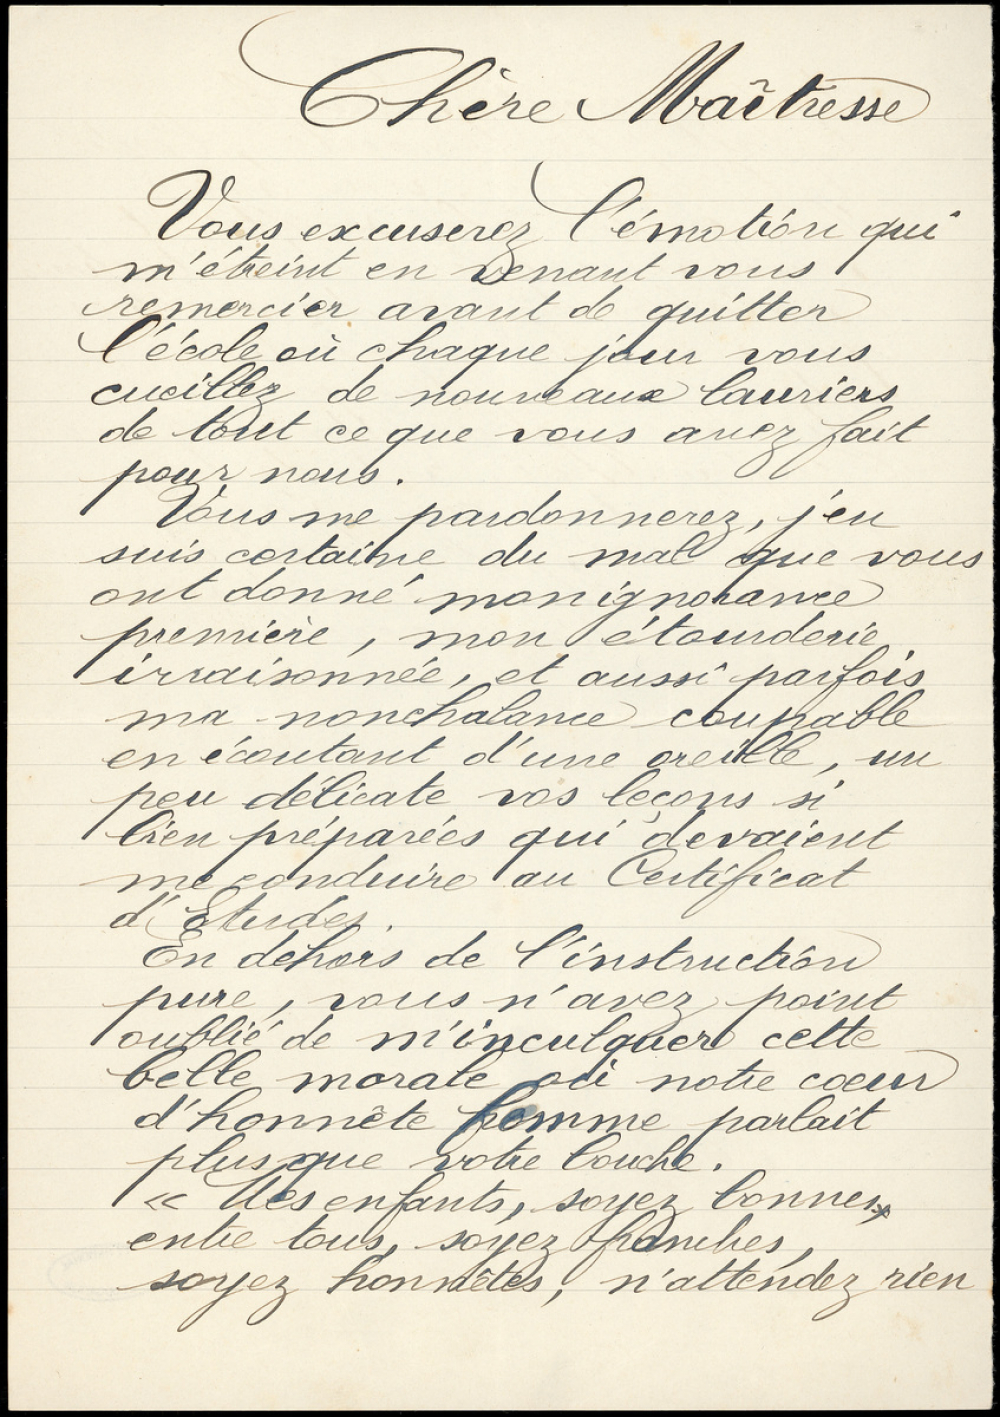 Chère Maîtresse
Vous excuserez l'émotion qui
m'étreint en venant vous
remercier avant de quitter
l'école où chaque jour vous
cueillez de nouveaux lauriers
de tout ce que vous avez fait
pour nous.
Vous me pardonnerez, j'en
suis certaine du mal que vous
ont donné mon ignorance
première, mon étourderie
irraisonnée, et aussi parfois
ma nonchalance coupable
en écoutant d'une oreille, un
peu délicate vos leçons si
bien préparées qui devaient
me conduire au Certificat
d'Etudes.
En dehors de l'instruction
pure, vous n'avez point
oublié de m'inculquer cette
belle morale où notre coeur
d'honnête femme parlait
plus que votre bouche.
« Mes enfants, soyez bonnes
entre tous, soyez franches,
soyez honnêtes, n'attendez rien